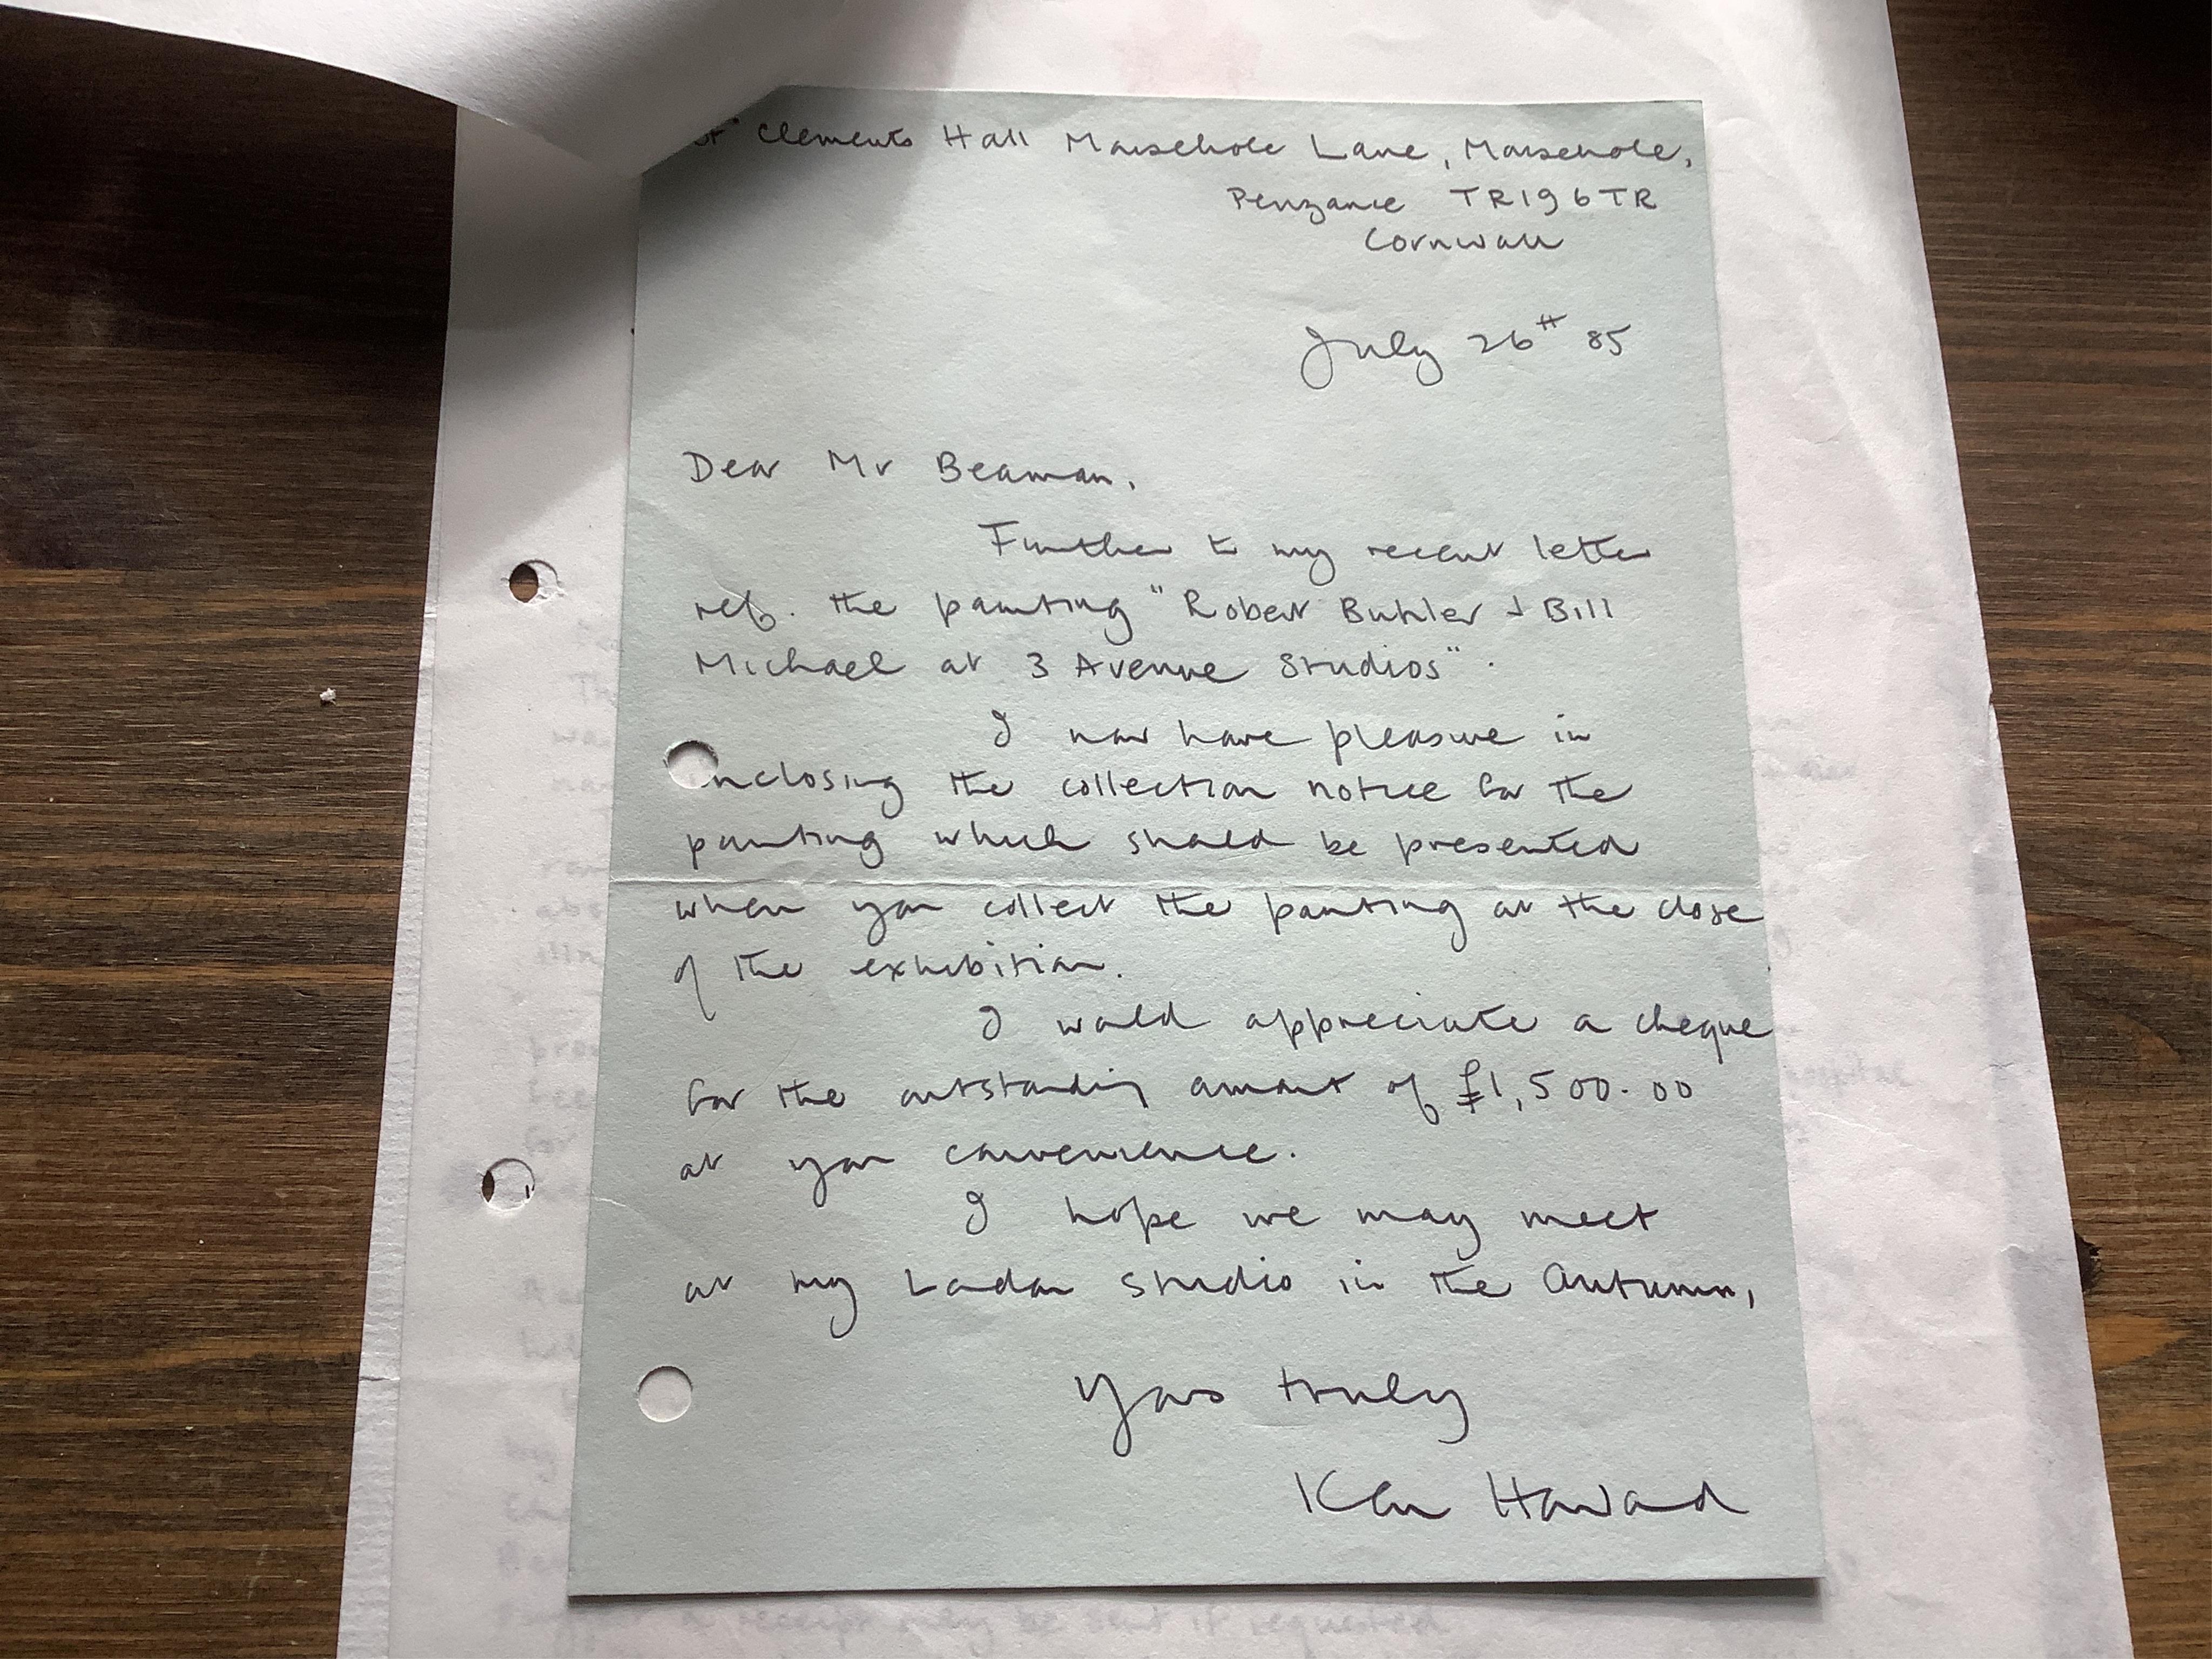 St Clements Hall Mousehole Lane, Mousehole,
Penzance TR19 6TR
Cornwall
July 26th 85
Dear Mr Beaman,
Further to my recent letter
ref. the painting "Robert Buhler + Bill
Michael at 3 Avenue Studios".
I now have pleasure in
enclosing the collection notice for the
painting which should be presented
when you collect the painting at the close
of the exhibition.
I would appreciate a cheque
for the outstanding amount of £1,500.00
at your convenience.
I hope we may meet
at my London studio in the Autumn,
Yours truly
Ken Howard
a receipt may be sent if requested